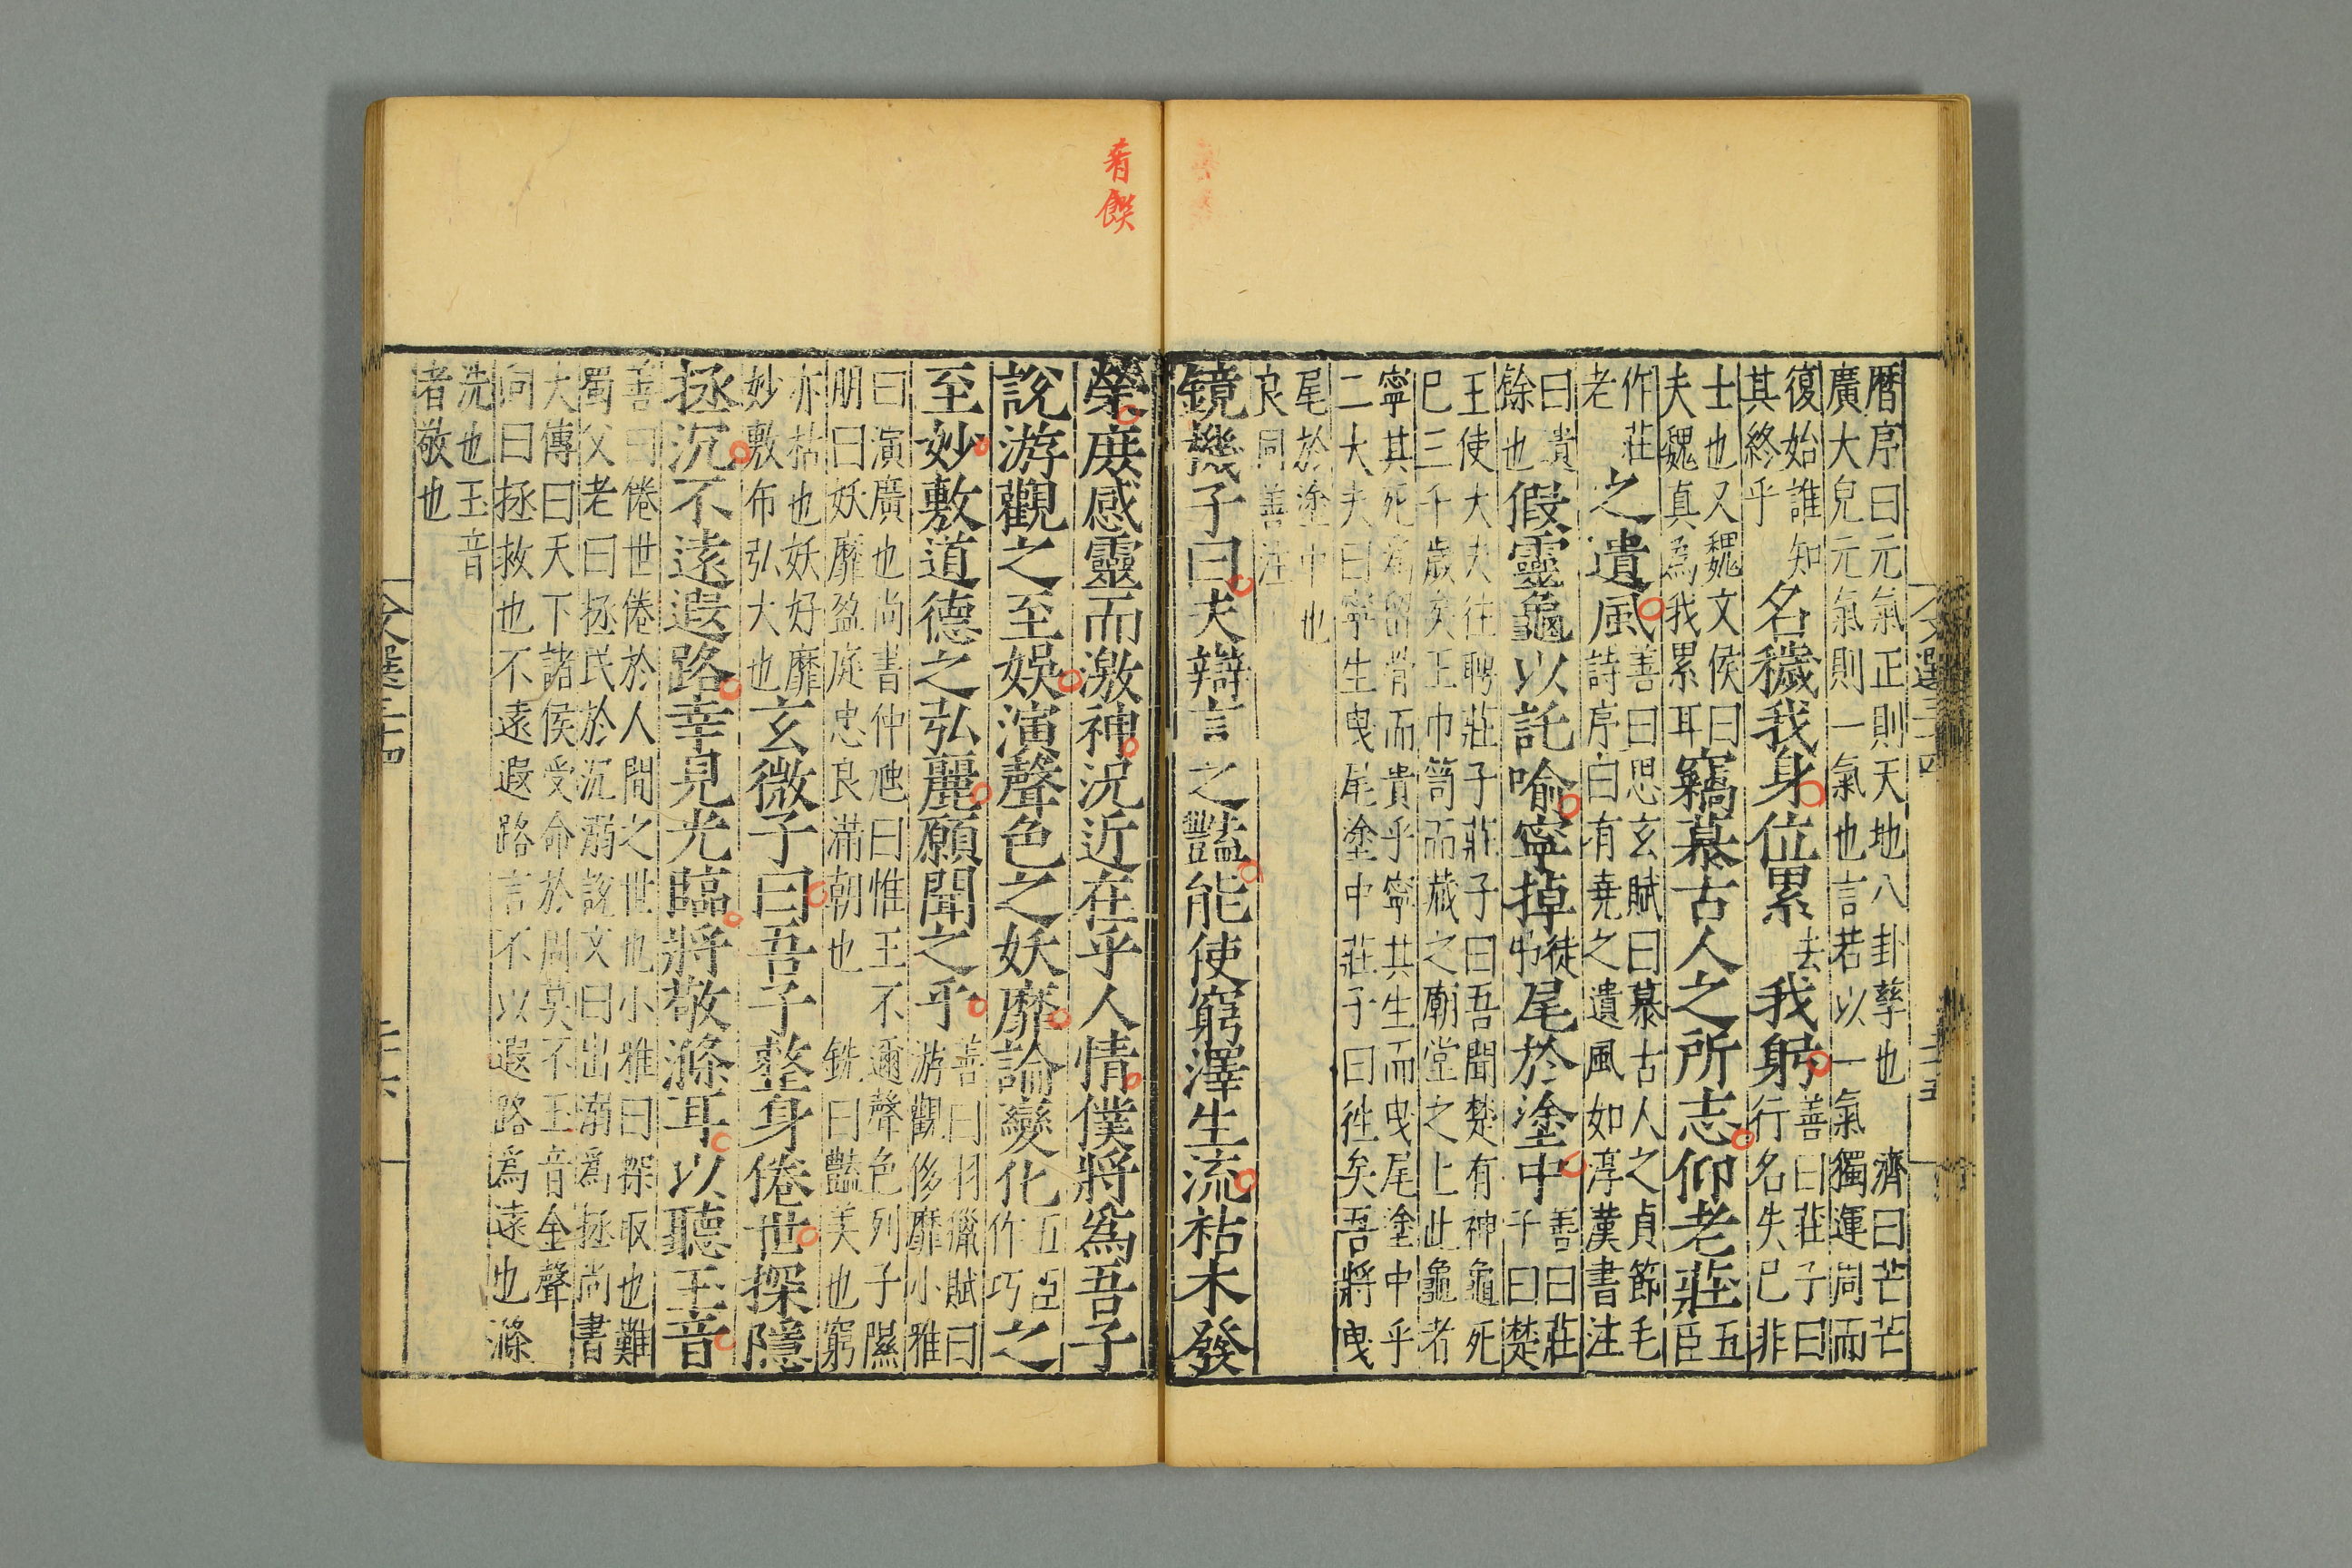 暦序曰元氣正則天地八卦孳也　濟曰芒芒
廣大皃元氣則一氣也言若以一氣獨運周而
復始誰知
其終乎
名穢我身位累
去
我躬
善曰莊子曰
行名失己非
士也又魏文侯曰
夫魏真爲我累耳
竊慕古人之所志仰老莊
五
臣
作莊
老
之遺風
善曰思玄賦曰慕古人之貞節毛
詩序曰有堯之遺風如淳漢書注
曰遺
餘也
假靈龜以託喻寧掉
徒
弔
尾於塗中
善曰莊
子曰楚
王使大夫往聘莊子莊子曰吾聞楚有神龜死
巳三千歲矣王巾笥而藏之廟堂之上此龜者
寧其死爲留骨而貴乎寧其生而曳尾塗中乎
二大夫曰寧生曳尾塗中莊子曰徃矣吾將曳
尾於塗中也
良同善注
鏡機子曰夫辯言之豔能使窮澤生流枯木發
榮庶感靈而激神況近在乎人情僕將爲吾子
說游觀之至娛演聲色之妖靡論變化
五臣
作巧
之
至妙敷道德之弘麗願聞之乎
善曰羽獵賦曰
游觀侈靡小雅
曰演廣也尚書仲虺曰惟王不邇聲色列子隰
朋曰妖靡盈庭忠良滿朝也　銑曰豔美也窮
亦枯也妖好靡
妙敷布弘大也
玄微子曰吾子整身倦世探隱
拯沉不遠遐路幸見光臨將敬滌耳以聽玉音
善曰倦世倦於人間之世也小雅曰探取也難
蜀父老曰拯民於沉溺說文曰出溺爲拯尚書
大傳曰天下諸侯受命於周莫不玉音金聲
向曰拯救也不遠遐路言不以遐路爲遠也滌
洗也玉音
者敬也
文選三十四
二十五
文選三十四
二十六
肴饌